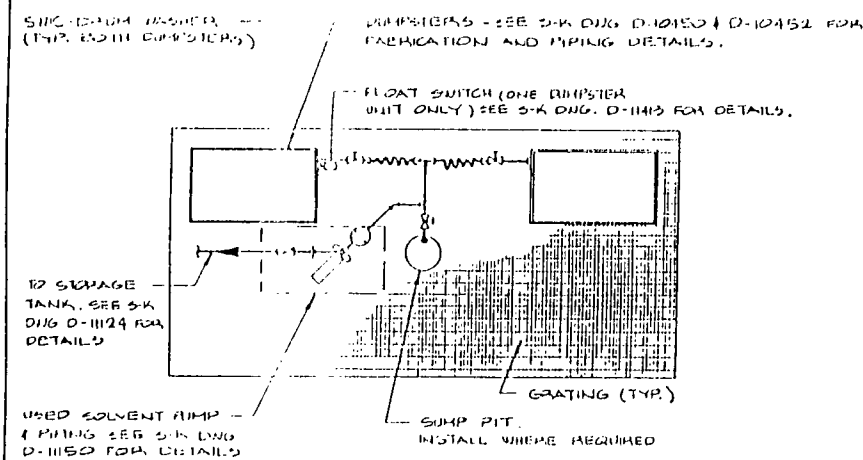 (TYP. BOTH DUMPSTERS)
DUMPSTERS - SEE S-K DWG D-10450 & D-10452 FOR
FABRICATION AND PIPING DETAILS.
FLOAT SWITCH (ONE DUMPSTER
UNIT ONLY) SEE S-K DWG. D-11413 FOR DETAILS.
TO STORAGE
TANK. SEE S-K
DWG D-11124 FOR
DETAILS
GRATING (TYP.)
USED SOLVENT PUMP
& PIPING SEE S-K DWG
D-11150 FOR DETAILS
SUMP PIT.
INSTALL WHERE REQUIRED